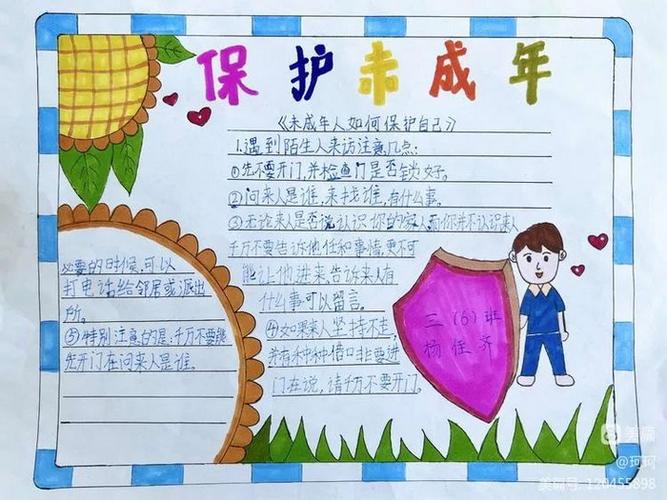 保护未成年
《未成年人如何保护自己》
1.遇到陌生人来访注意几点:
①先不要开门,并检查门是否锁好。
②问来人是谁,来找谁,有什么事。
③无论来人是否说认识你的家人,而你并不认识来人
千万不要告诉他任和事情,更不可
能让他进来,告诉来人有
什么事可以留言。
④如果来人坚持不走,
并有种种借口非要进
门在说,请千万不要开门。
必要的时候,可以
打电话给邻居或派出
所。
⑤特别注意的是:千万不要
先开门在问来人是谁。
三(6)班
杨任齐
美篇
@珂珂
美篇号:120455898